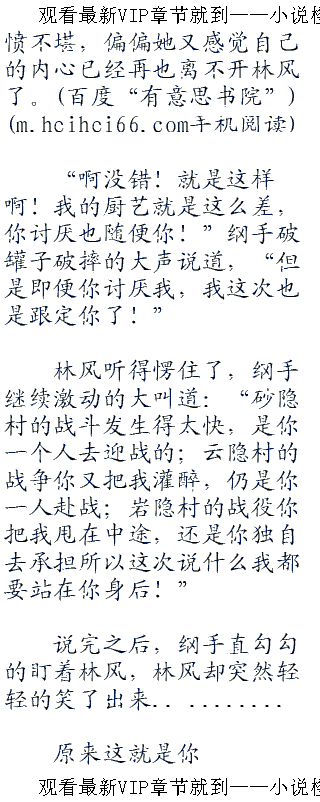 观看最新VIP章节就到——小说检
愤不堪，偏偏她又感觉自己
的内心已经再也离不开林风
了。(百度“有意思书院”)
(m.hcihci66.com手机阅读)
“啊没错！就是这样
啊！我的厨艺就是这么差，
你讨厌也随便你！”纲手破
罐子破摔的大声说道，“但
是即便你讨厌我，我这次也
是跟定你了！”
林风听得愣住了，纲手
继续激动的大叫道：“砂隐
村的战斗发生得太快，是你
一个人去迎战的；云隐村的
战争你又把我灌醉，仍是你
一人赴战；岩隐村的战役你
把我甩在中途，还是你独自
去承担所以这次说什么我都
要站在你身后！”
说完之后，纲手直勾勾
的盯着林风，林风却突然轻
轻的笑了出来..........
原来这就是你
观看最新VIP章节就到——小说检